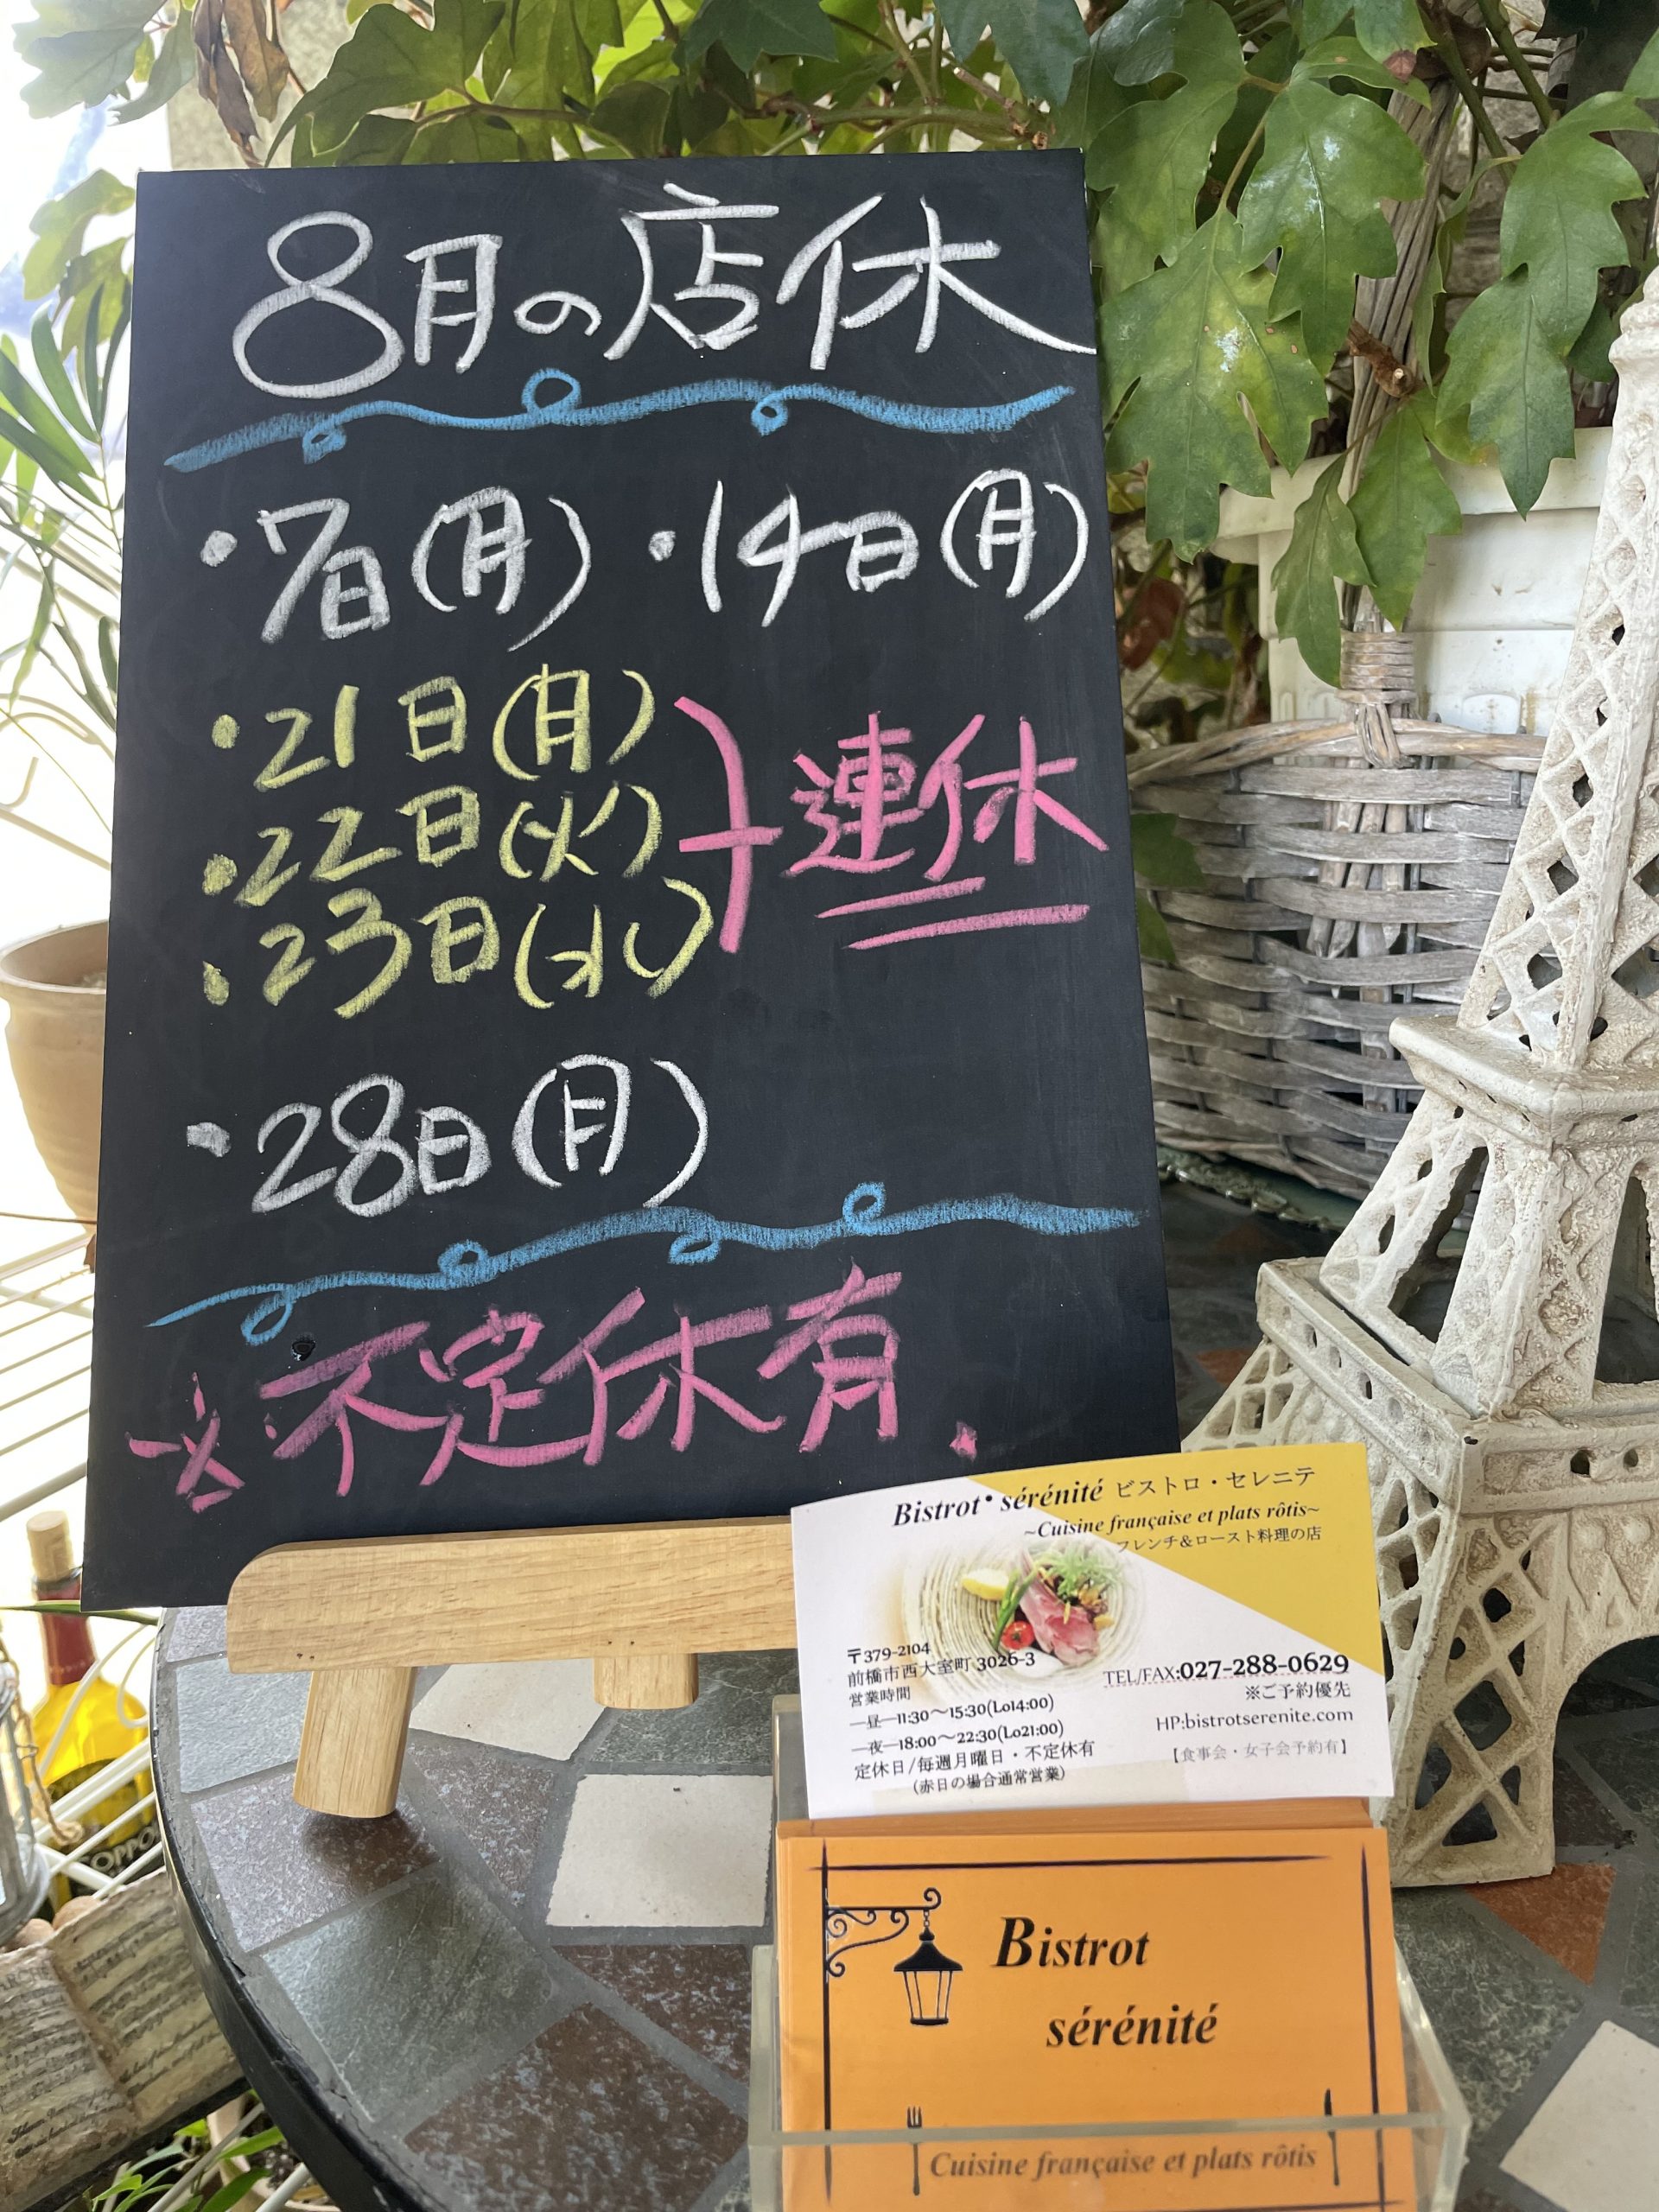 8月の店休
・7日(月) ・14日(月)
・21日(月)
・22日(火)
・23日(水)
連休
・28日(月)
※不定休有.
Bistrot・sérénité ビストロ・セレニテ
~Cuisine française et plats rôtis~
フレンチ&ロースト料理の店
〒379-2104
前橋市西大室町 3026-3
営業時間
―昼―11:30～15:30(Lo14:00)
―夜―18:00～22:30(Lo21:00)
定休日/毎週月曜日・不定休有
(赤日の場合通常営業)
TEL/FAX:027-288-0629
※ご予約優先
HP:bistrotserenite.com
【食事会・女子会予約有】
Bistrot
sérénité
Cuisine française et plats rôtis